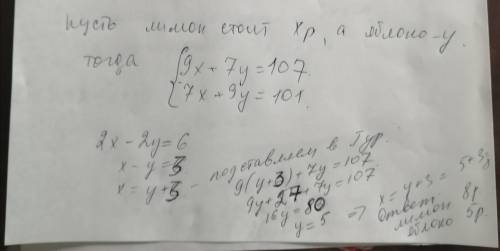 пусть лимон стоит xр, а яблоко-y.
тогда
9x+7y=107.
7x+9y=101.
2x-2y=6
x-y=3
x=y+3 - подставляем в 1 ур.
9(y+3)+7y=107.
9y+27+7y=107
16y=80
y=5 => x=y+3=5+3=8
Ответ:
лимон 8р
яблоко 5р.